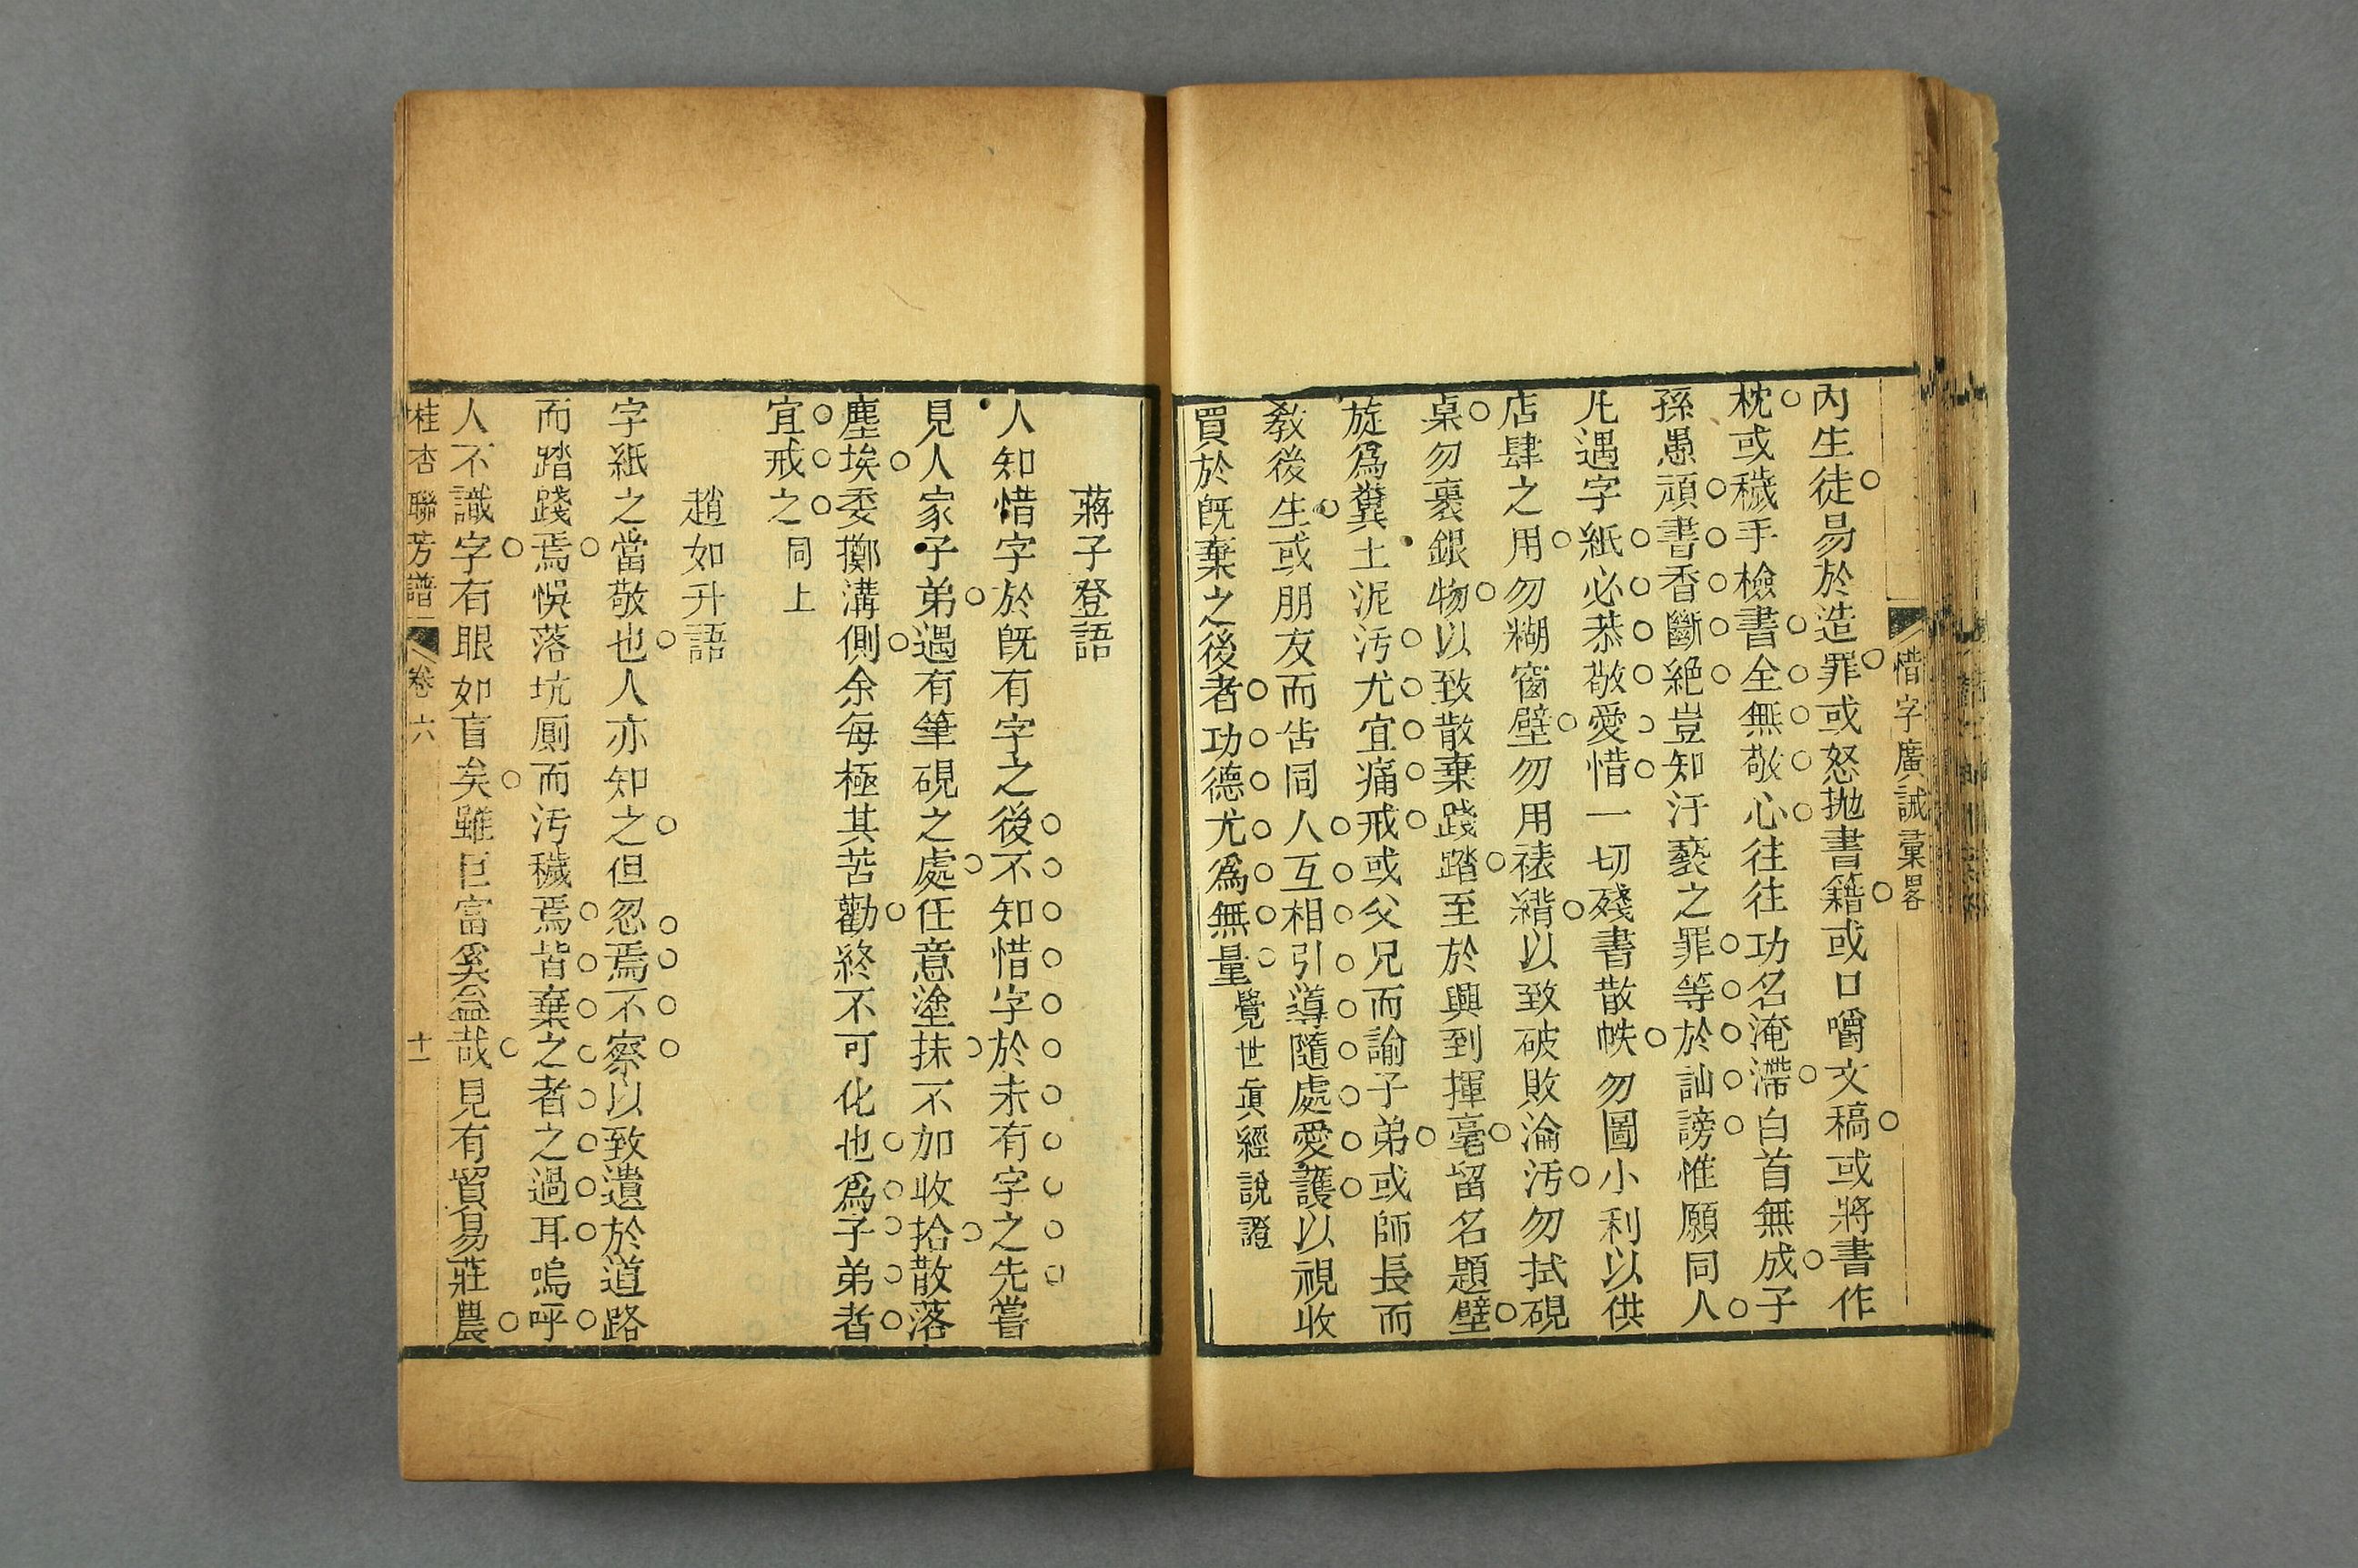 惜字廣誡彙畧
內生徒易於造罪或怒拋書籍或口嚼文稿或將書作
枕或穢手檢書全無敬心往往功名淹滯白首無成子
孫愚頑書香斷絕豈知汙褻之罪等於訕謗惟願同人
凡遇字紙必恭敬愛惜一切殘書散帙勿圖小利以供
店肆之用勿糊窗壁勿用裱褙以致破敗淪汚勿拭硯
桌勿裹銀物以致散棄踐踏至於興到揮毫留名題壁
旋爲糞土泥汚尤宜痛戒或父兄而諭子弟或師長而
敎後生或朋友而告同人互相引導隨處愛護以視收
買於旣棄之後者功德尤爲無量覺世眞經說證
蔣子登語
人知惜字於旣有字之後不知惜字於未有字之先嘗
見人家子弟遇有筆硯之處任意塗抹不加收拾散落
塵埃委擲溝側余每極其苦勸終不可化也爲子弟者
宜戒之同上
趙如升語
字紙之當敬也人亦知之但忽焉不察以致遺於道路
而踏踐焉悞落坑厠而汚穢焉皆棄之者之過耳嗚呼
人不識字有眼如盲矣雖巨富奚益哉見有貿易莊農
桂杏聯芳譜 卷六 十一